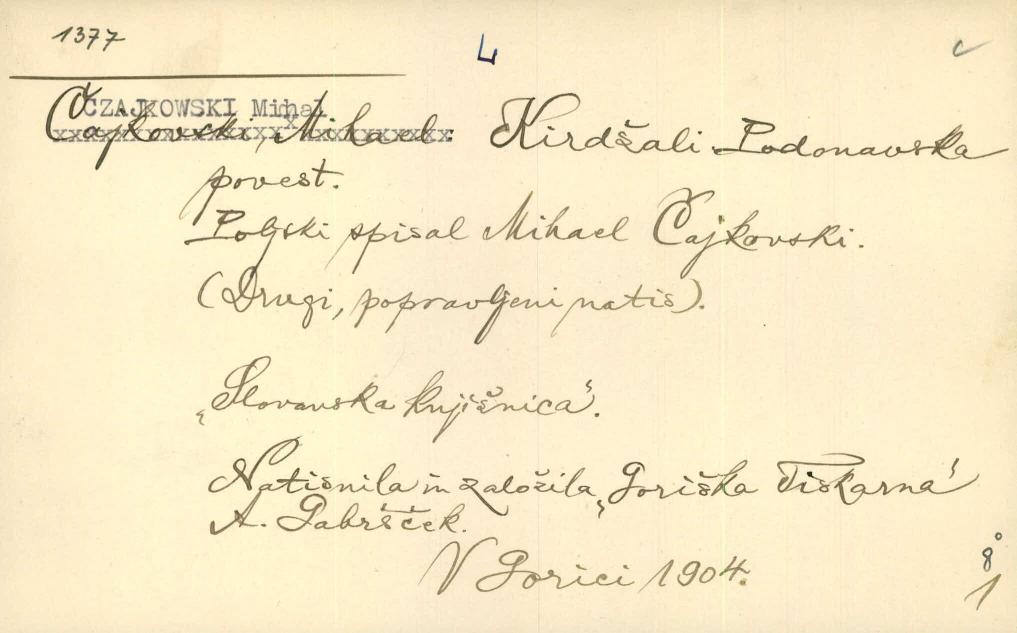 1377
L
CZAJKOWSKI Mihal
Čajkovski, Mihael: Kirdžali. Podonavska
povest.
Poljski spisal Mihael Čajkovski.
(Drugi, popravljeni natis).
„Slovanska knjižnica".
Natisnila in založila „Goriška Tiskarna"
A. Gabršček.
V Gorici 1904.
8°
1